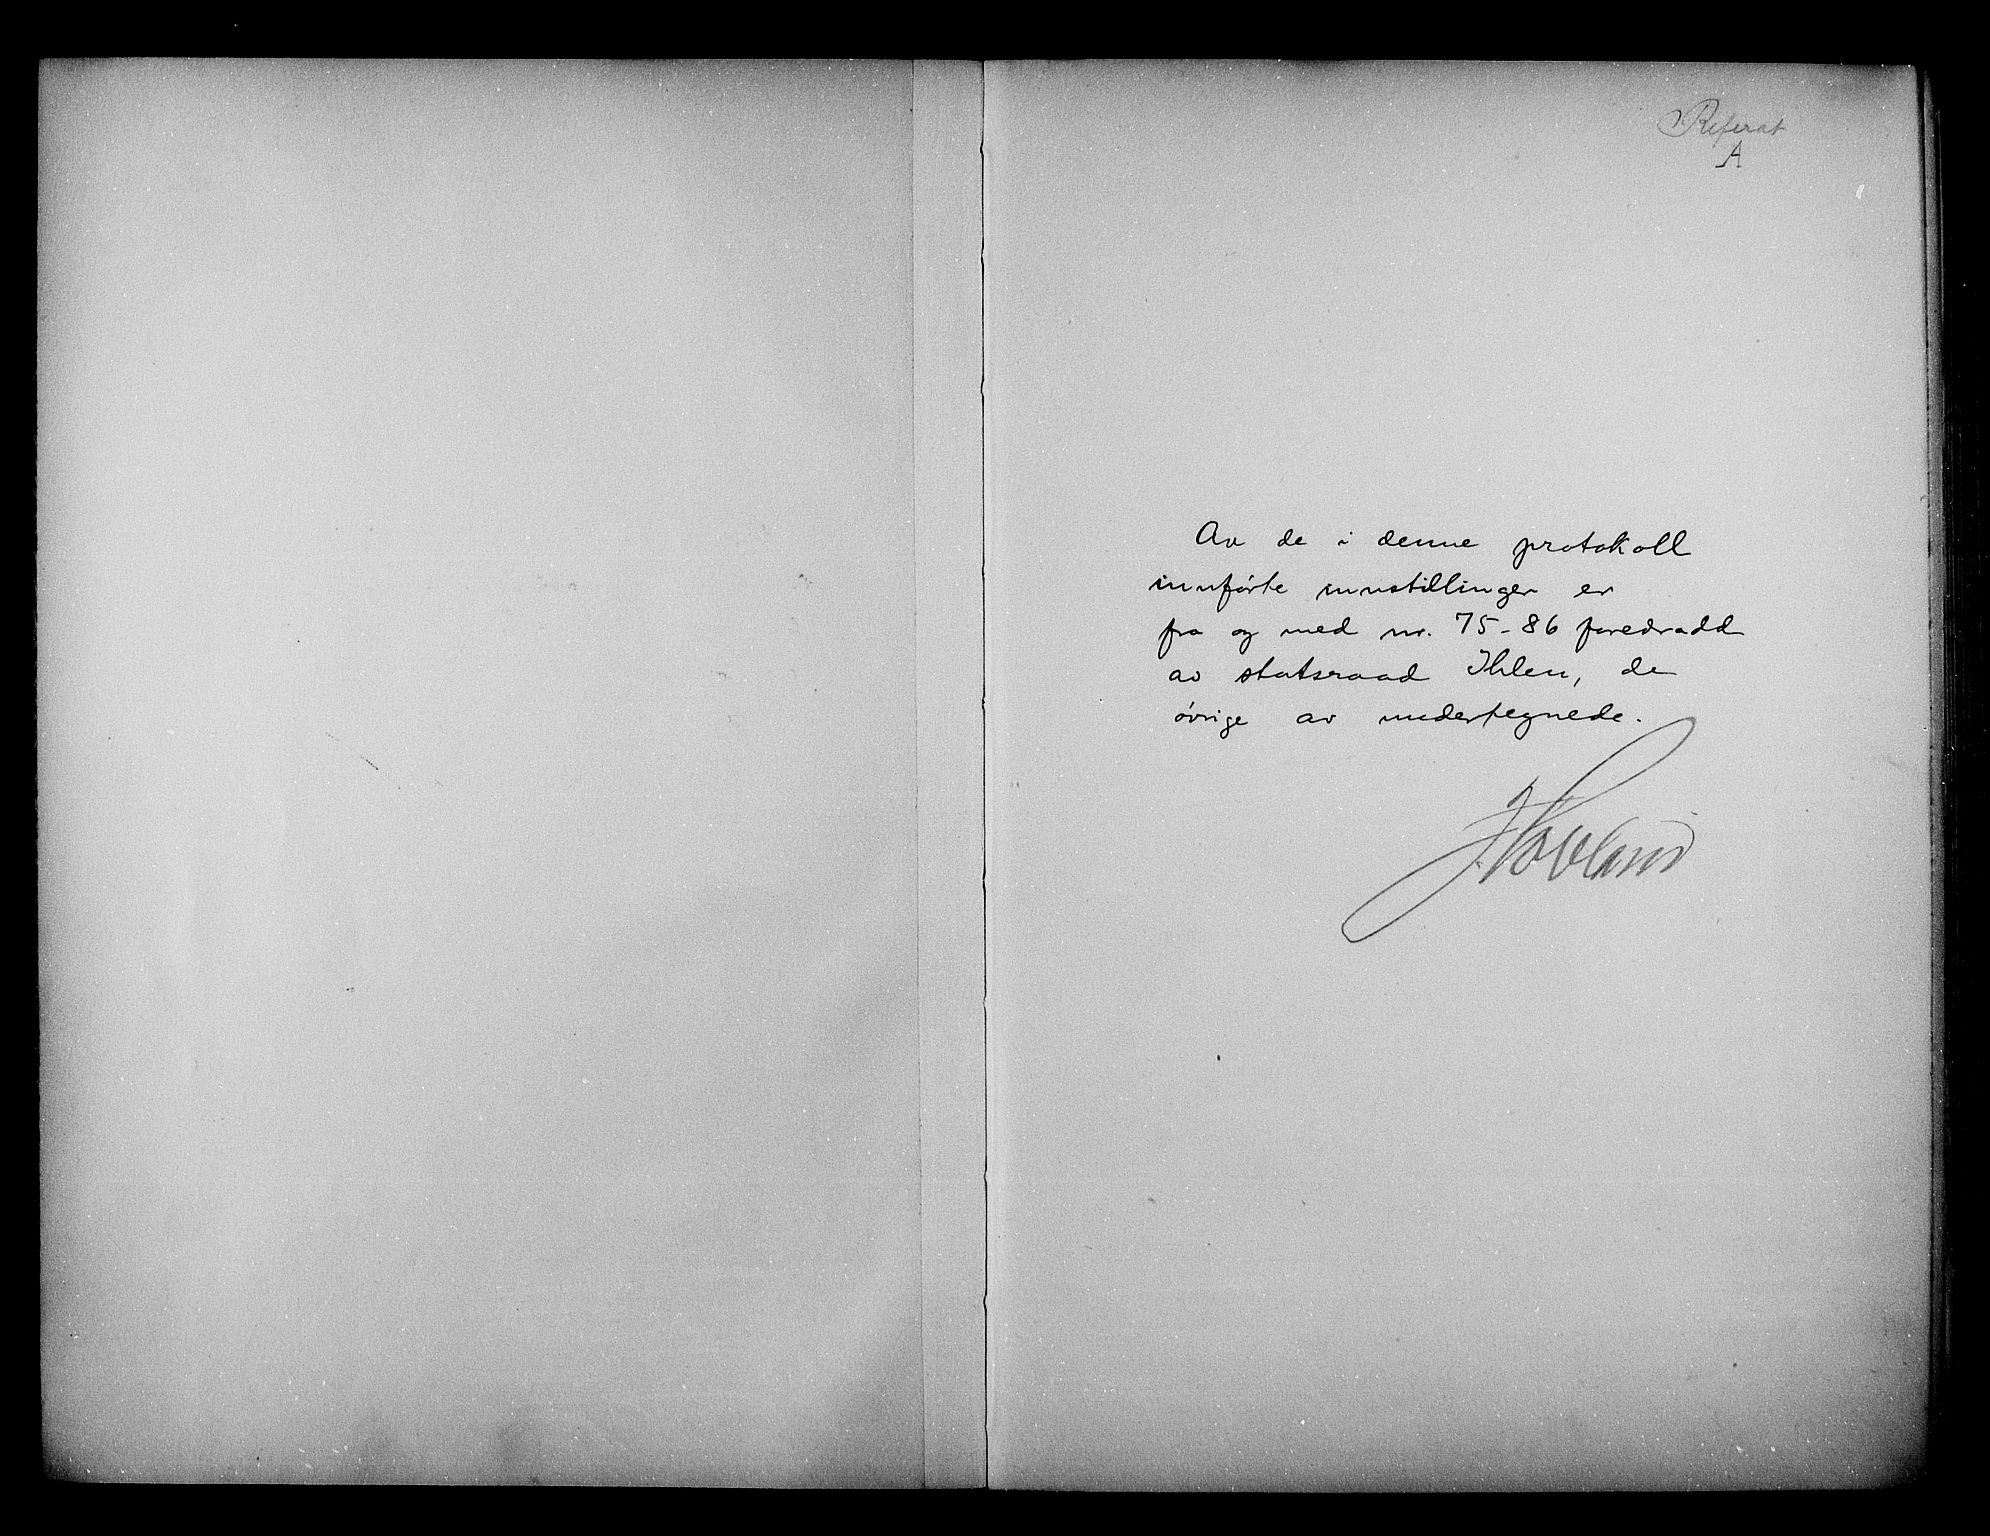 Referat
A
Av de i denne protokoll
innførte innstillinger er
fra og med nr. 75-86 foredradd
av statsraad Ihlen, de
øvrige av undertegnede.
J. Hovland